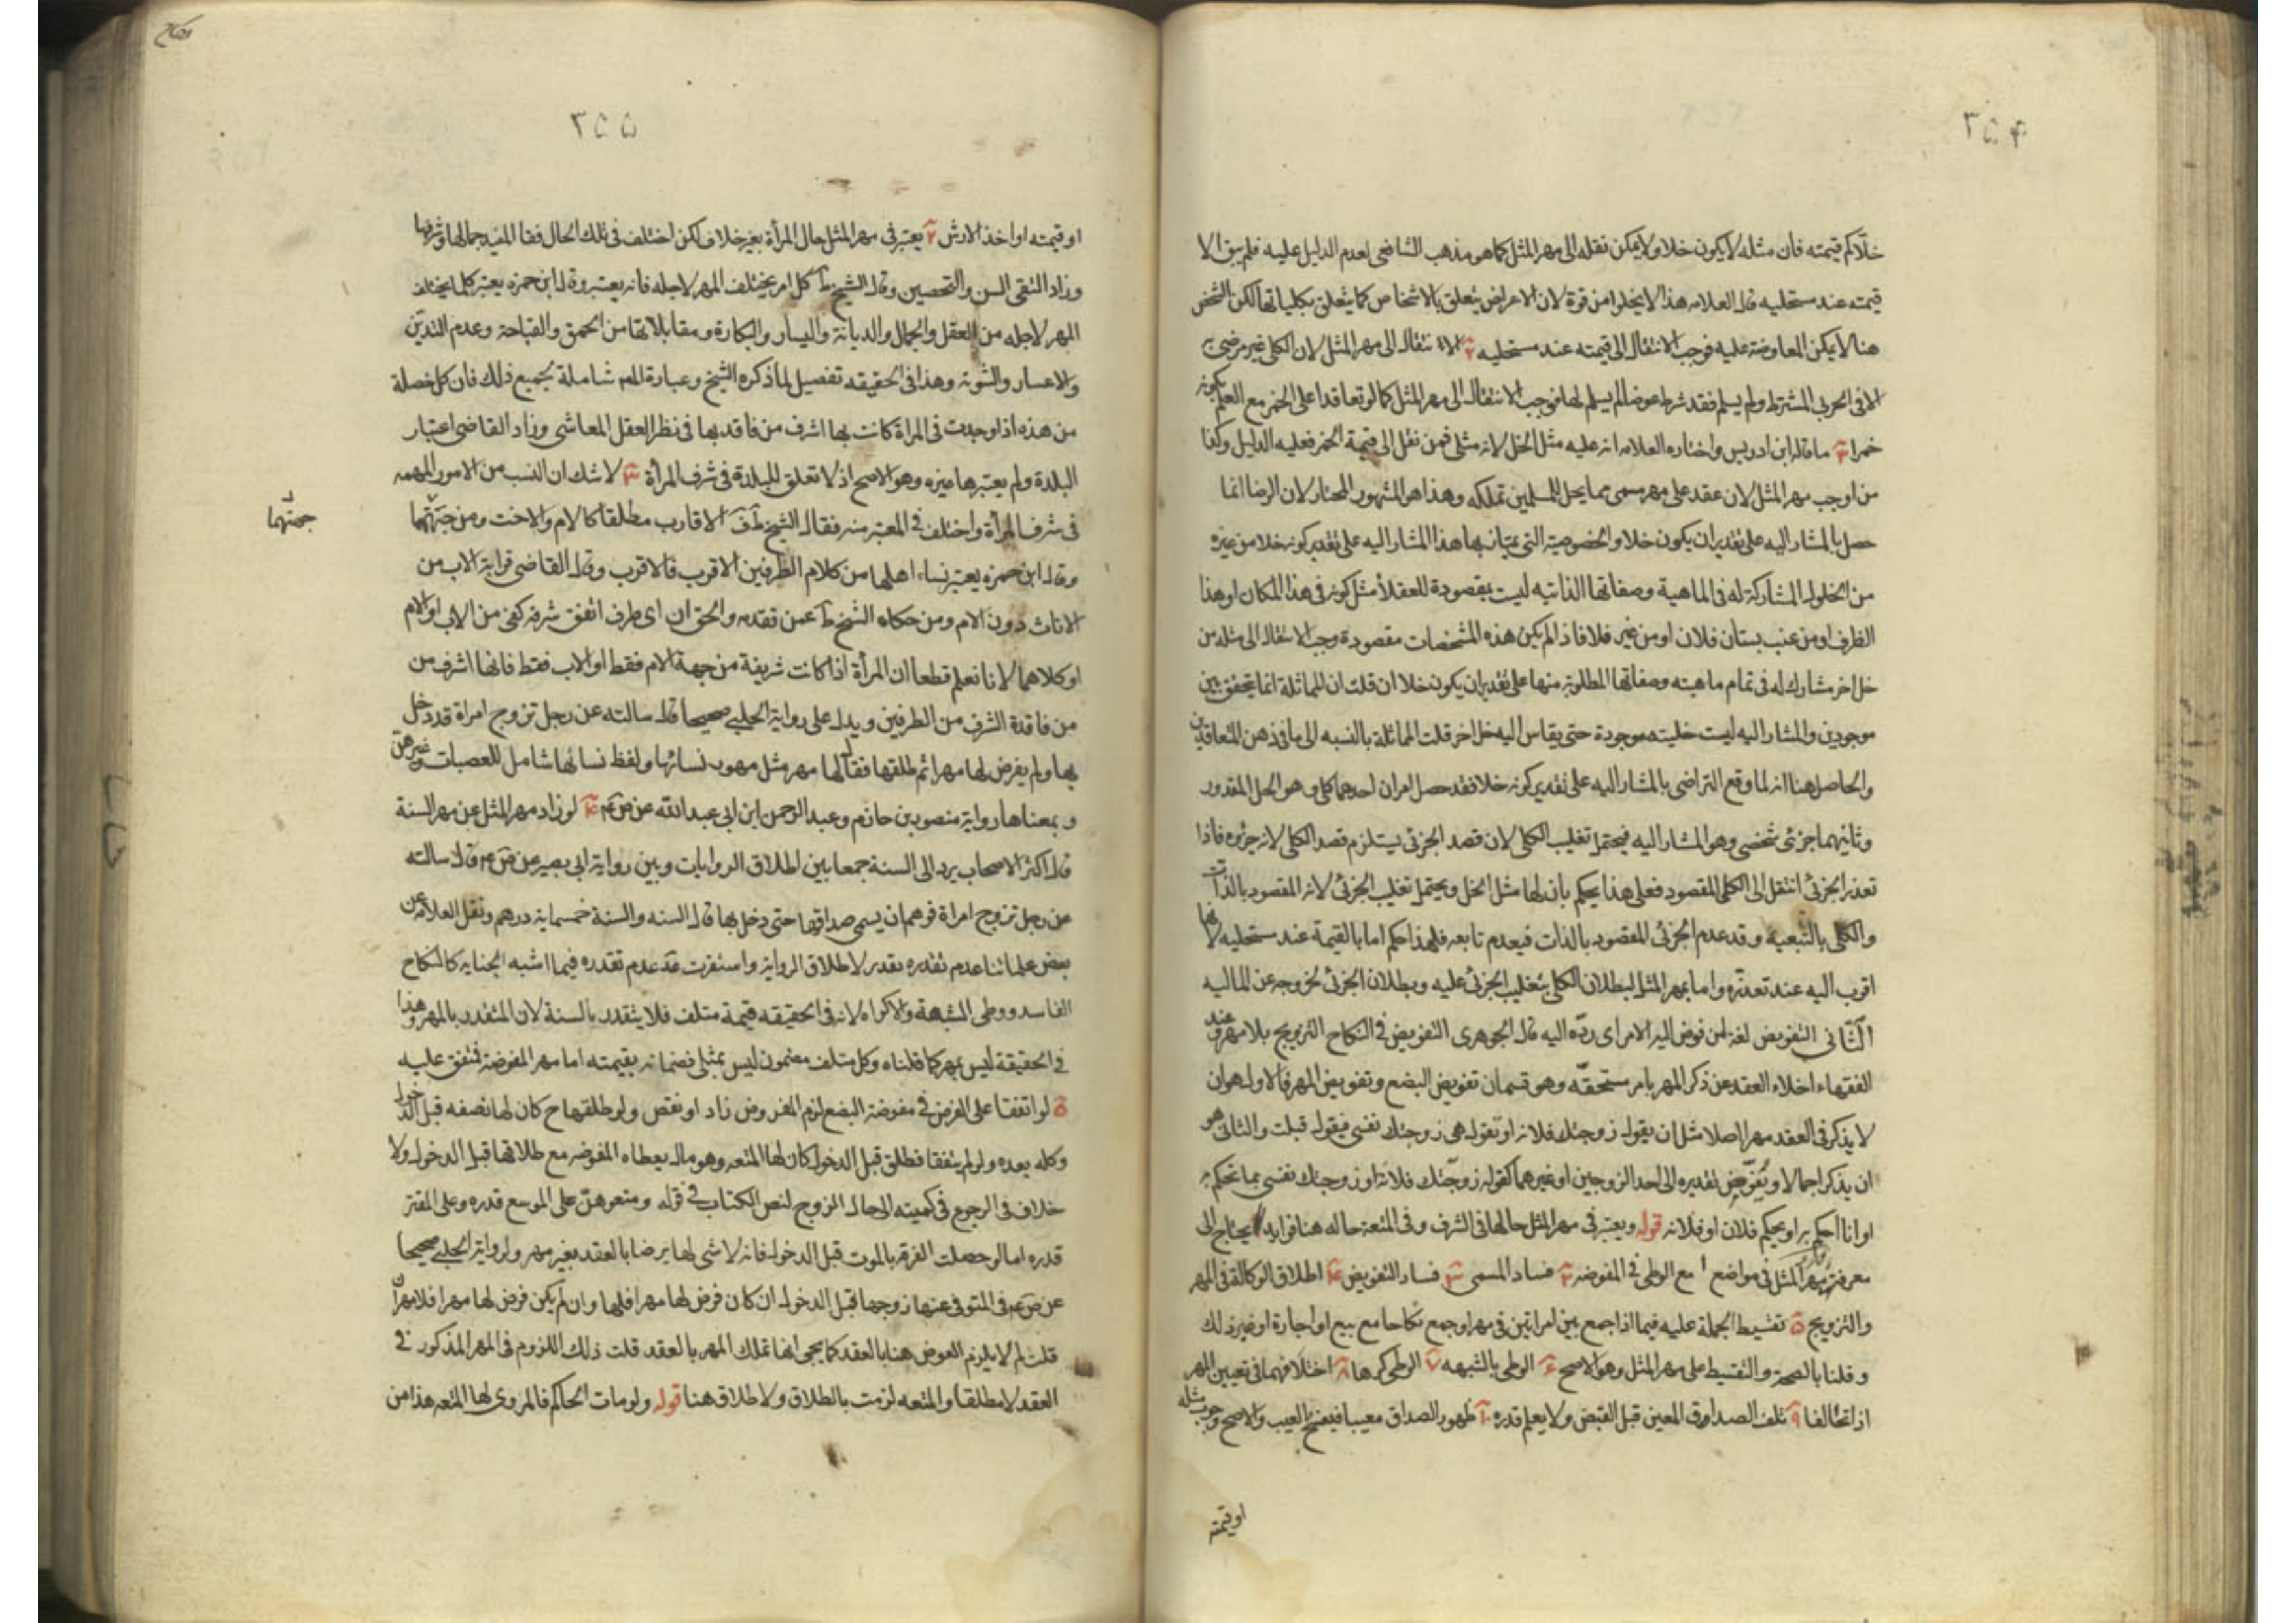 ۳۵۴
خلا كم قيمته فان مثله لا يكون خلا ولا يمكن نقله الى مهر المثل كما هو مذهب الشافعى لعدم الدليل عليه فلم يبق الا
قيمته عند مستحليه قال العلامه هذا لا يخلوا من قوة لان الاعراض يتعلق بالاشخاص كما يتعلق بكلياتها لكن الشخص
هنا لا يمكن المعاوضة عليه فوجب الانتقال الى قيمته عند مستحليه ٢ الانتقال الى مهر المثل لان الكلى غير مرضى به
الا فى الجزئى المشترط ولم يسلم فقد شرط عوضا لم يسلم لها فوجب الانتقال الى مهر المثل كما لو تعاقدا على الخمر مع العلم بكونه
خمرا ٣ ما قاله ابن ادريس واختاره العلامه ان عليه مثل الخل لانه مثلى فمن نقل الى قيمة الخمر فعليه الدليل وكذا
من اوجب مهر المثل لان عقد على مهر مسمى مما يحل للمسلمين تملكه وهذا هو المشهور المختار لان الرضا انما
حصل بالمشار اليه على تقدير ان يكون خلا والخصوصية التى يمتاز بها هذا المشار اليه على تقدير كونه خلا من غيره
من الخلول المشاركة له فى الماهية وصفاتها الذاتيه ليست بمقصودة للعقلا مثل كونه فى هذا المكان او هذا
الظرف او من عنب بستان فلان او من غير فلا فاذا لم يكن هذه المشخصات مقصودة وجب الانتقال الى مثله من
خل اخر مشارك له فى تمام ماهيته وصفاتها المطلوبة منها على تقدير ان يكون خلا ان قلت ان المماثلة انما يتحقق بين
موجودين والمشار اليه ليست خليته موجودة حتى يقاس اليه خل اخر قلت المماثلة بالنسبه الى ما فى ذهن المتعاقدين
والحاصل هنا انه لما وقع التراضى بالمشار اليه على تقدير كونه خلا فقد حصل امران احدهما كلى وهو الخل المقدور
وثانيهما جزئى شخصى وهو المشار اليه فيحتمل تغليب الكلى لان قصد الجزئى يستلزم قصد الكلى لانه جزؤه فاذا
تعذر الجزئى انتقل الى الكلى المقصود فعلى هذا يحكم بان لها مثل الخل ويحتمل تغليب الجزئى لانه المقصود بالذات
والكلى بالتبعيه وقد عدم الجزئى المقصود بالذات فيعدم تابعه فلهذا حكم اما بالقيمة عند مستحليه لانها
اقرب اليه عند تعذره واما بمهر المثل لبطلان الكلى بتغليب الجزئى عليه وبطلان الجزئى لخروجه عن الماليه
الثانى التفويض لغة من فوض اليه الامر اى رده اليه قال الجوهرى التفويض فى النكاح التزويج بلا مهر وعند
الفقهاء اخلاء العقد عن ذكر المهر بامر مستحقه وهو قسمان تفويض البضع وتفويض المهر فالاول هو ان
لا يذكر فى العقد مهر اصلا مثل ان يقول زوجتك فلانه او تقول هى زوجتك نفسى فيقول قبلت والثانى هو
ان يذكر اجمالا ويفوض تقديره الى احد الزوجين او غيرهما كقوله زوجتك فلانة او زوجتك نفسى بما تحكم به
او انا احكم به او يحكم فلان او فلانه قوله ويعتبر فى مهر المثل حالها فى الشرف وفى المتعة حاله هنا فوايد ا يحتاج الى
معرفة مهر المثل فى مواضع ا مع الوطى فى المفوضه ٢ فساد المسمى ٣ فساد التفويض ۴ اطلاق الوكالة فى المهر
والتزويج ۵ تقسيط الجملة عليه فيما اذا جمع بين امراتين فى مهر او جمع نكاحا مع بيع او اجارة او غير ذلك
وقلنا بالصحة والتقسيط على مهر المثل وهو الاصح ۶ الوطى بالشبهه ٧ الوطى كرها ٨ اختلافهما فى تعيين المهر
اذا تحالفا ٩ تلف الصداق المعين قبل القبض ولا يعلم قدره ١٠ ظهور الصداق معيبا فيفسخ بالعيب والاصح وجوب مثله
او قيمته
۳۵۵
او قيمته او اخذ الارش ٢ يعتبر فى مهر المثل حال المرأة بغير خلاف لكن اختلف فى تلك الحال فقا المفيد جمالها وشرفها
وزاد التقى السن والتحصين وقال الشيخ ط كل امر يختلف المهر لاجله فانه يعتبر وقال ابن حمزه يعتبر كلما يختلف
المهر لاجله من العقل والجمال والديانة واليسار والبكارة ومقابلاتها من الحمق والقباحة وعدم التدين
والاعسار والثيوبة وهذا فى الحقيقه تفصيل لما ذكره الشيخ وعبارة المص شاملة لجميع ذلك فان كل خصلة
من هذه اذا وجدت فى المراة كانت بها اشرف من فاقدتها فى نظر العقل المعاشى وزاد القاضى اعتبار
البلدة ولم يعتبرها غيره وهو الاصح اذ لا تعلق للبلدة فى شرف المرأة ٣ لا شك ان النسب من الامور المهمه
فى شرف المرأة واختلف فى المعتبر منه فقال الشيخ ط ف الاقارب مطلقا كالام والاخت ومن جهتهما
جهتهما
وقال ابن حمزه يعتبر نساء اهلها من كلام الطرفين الاقرب فالاقرب وقال القاضى قرابة الاب من
الاناث دون الام ومن حكاه الشيخ ط عمن تقدمه والحق ان اى طرف اتفق شرفه كفى من الاب او الام
او كلاهما لانا نعلم قطعا ان المرأة اذا كانت شريفة من جهة الام فقط او الاب فقط فانها اشرف من
من فاقدة الشرف من الطرفين ويدل على رواية الحلبى صحيحا قال سالته عن رجل تزوج امراة قد دخل
بها ولم يفرض لها مهرا ثم طلقها فقال لها مهر مثل مهور نسائها ولفظ نسائها شامل للعصبات وغيرهن
وبمعناها رواية منصور بن حازم وعبد الرحمن ابن ابى عبد الله عن ص ع ۴ لو زاد مهر المثل عن مهر السنة
قال اكثر الاصحاب يرد الى السنة جمعا بين اطلاق الروايات وبين رواية ابى بصير عن ص ع قال سالته
عن رجل تزوج امراة فوهم ان يسمى صداقها حتى دخل بها قال السنه والسنة خمسماية درهم ونقل العلامه عن
بعض علمائنا عدم تقديره بقدر لاطلاق الرواية واستقرت عدم تقدره فيما اشبه الجنايه كالنكاح
الفاسد ووطى الشبهة والاكراه لانه فى الحقيقه قيمة متلف فلا يتقدر بالسنة لان المتقدر بالمهر وهذا
فى الحقيقة ليس بمهر كما قلناه وكل متلف مضمون ليس بمثلى فضمانه بقيمته اما مهر المفوضة فمتفق عليه
۵ لو اتفقا على الفرض فى مفوضة البضع لزم المفروض زاد او نقص ولو طلقها ح كان لها نصفه قبل الدخول
وكله بعده ولو لم يتفقا فطلق قبل الدخول كان لها المتعه وهو مال يعطاه المفوضه مع طلاقها قبل الدخول ولا
خلاف فى الرجوع فى كميته الى حال الزوج لنص الكتاب فى قوله ومتعوهن على الموسع قدره وعلى المقتر
قدره اما لو حصلت الفرقة بالموت قبل الدخول فانه لا شى لها لرضا بالعقد بغير مهر ولرواية الحلبى صحيحا
عن ص ع فى المتوفى عنها زوجها قبل الدخول ان كان فرض لها مهرا فلها وان لم يكن فرض لها مهرا فلا مهر ان
قلت لم لا يلزم العوض هنا بالعقد كما يجى انها تملك المهر بالعقد قلت ذلك اللزوم فى المهر المذكور فى
العقد لا مطلقا والمتعه لزمت بالطلاق ولا طلاق هنا قوله ولو مات الحاكم فالمروى لها المتعه هذا من